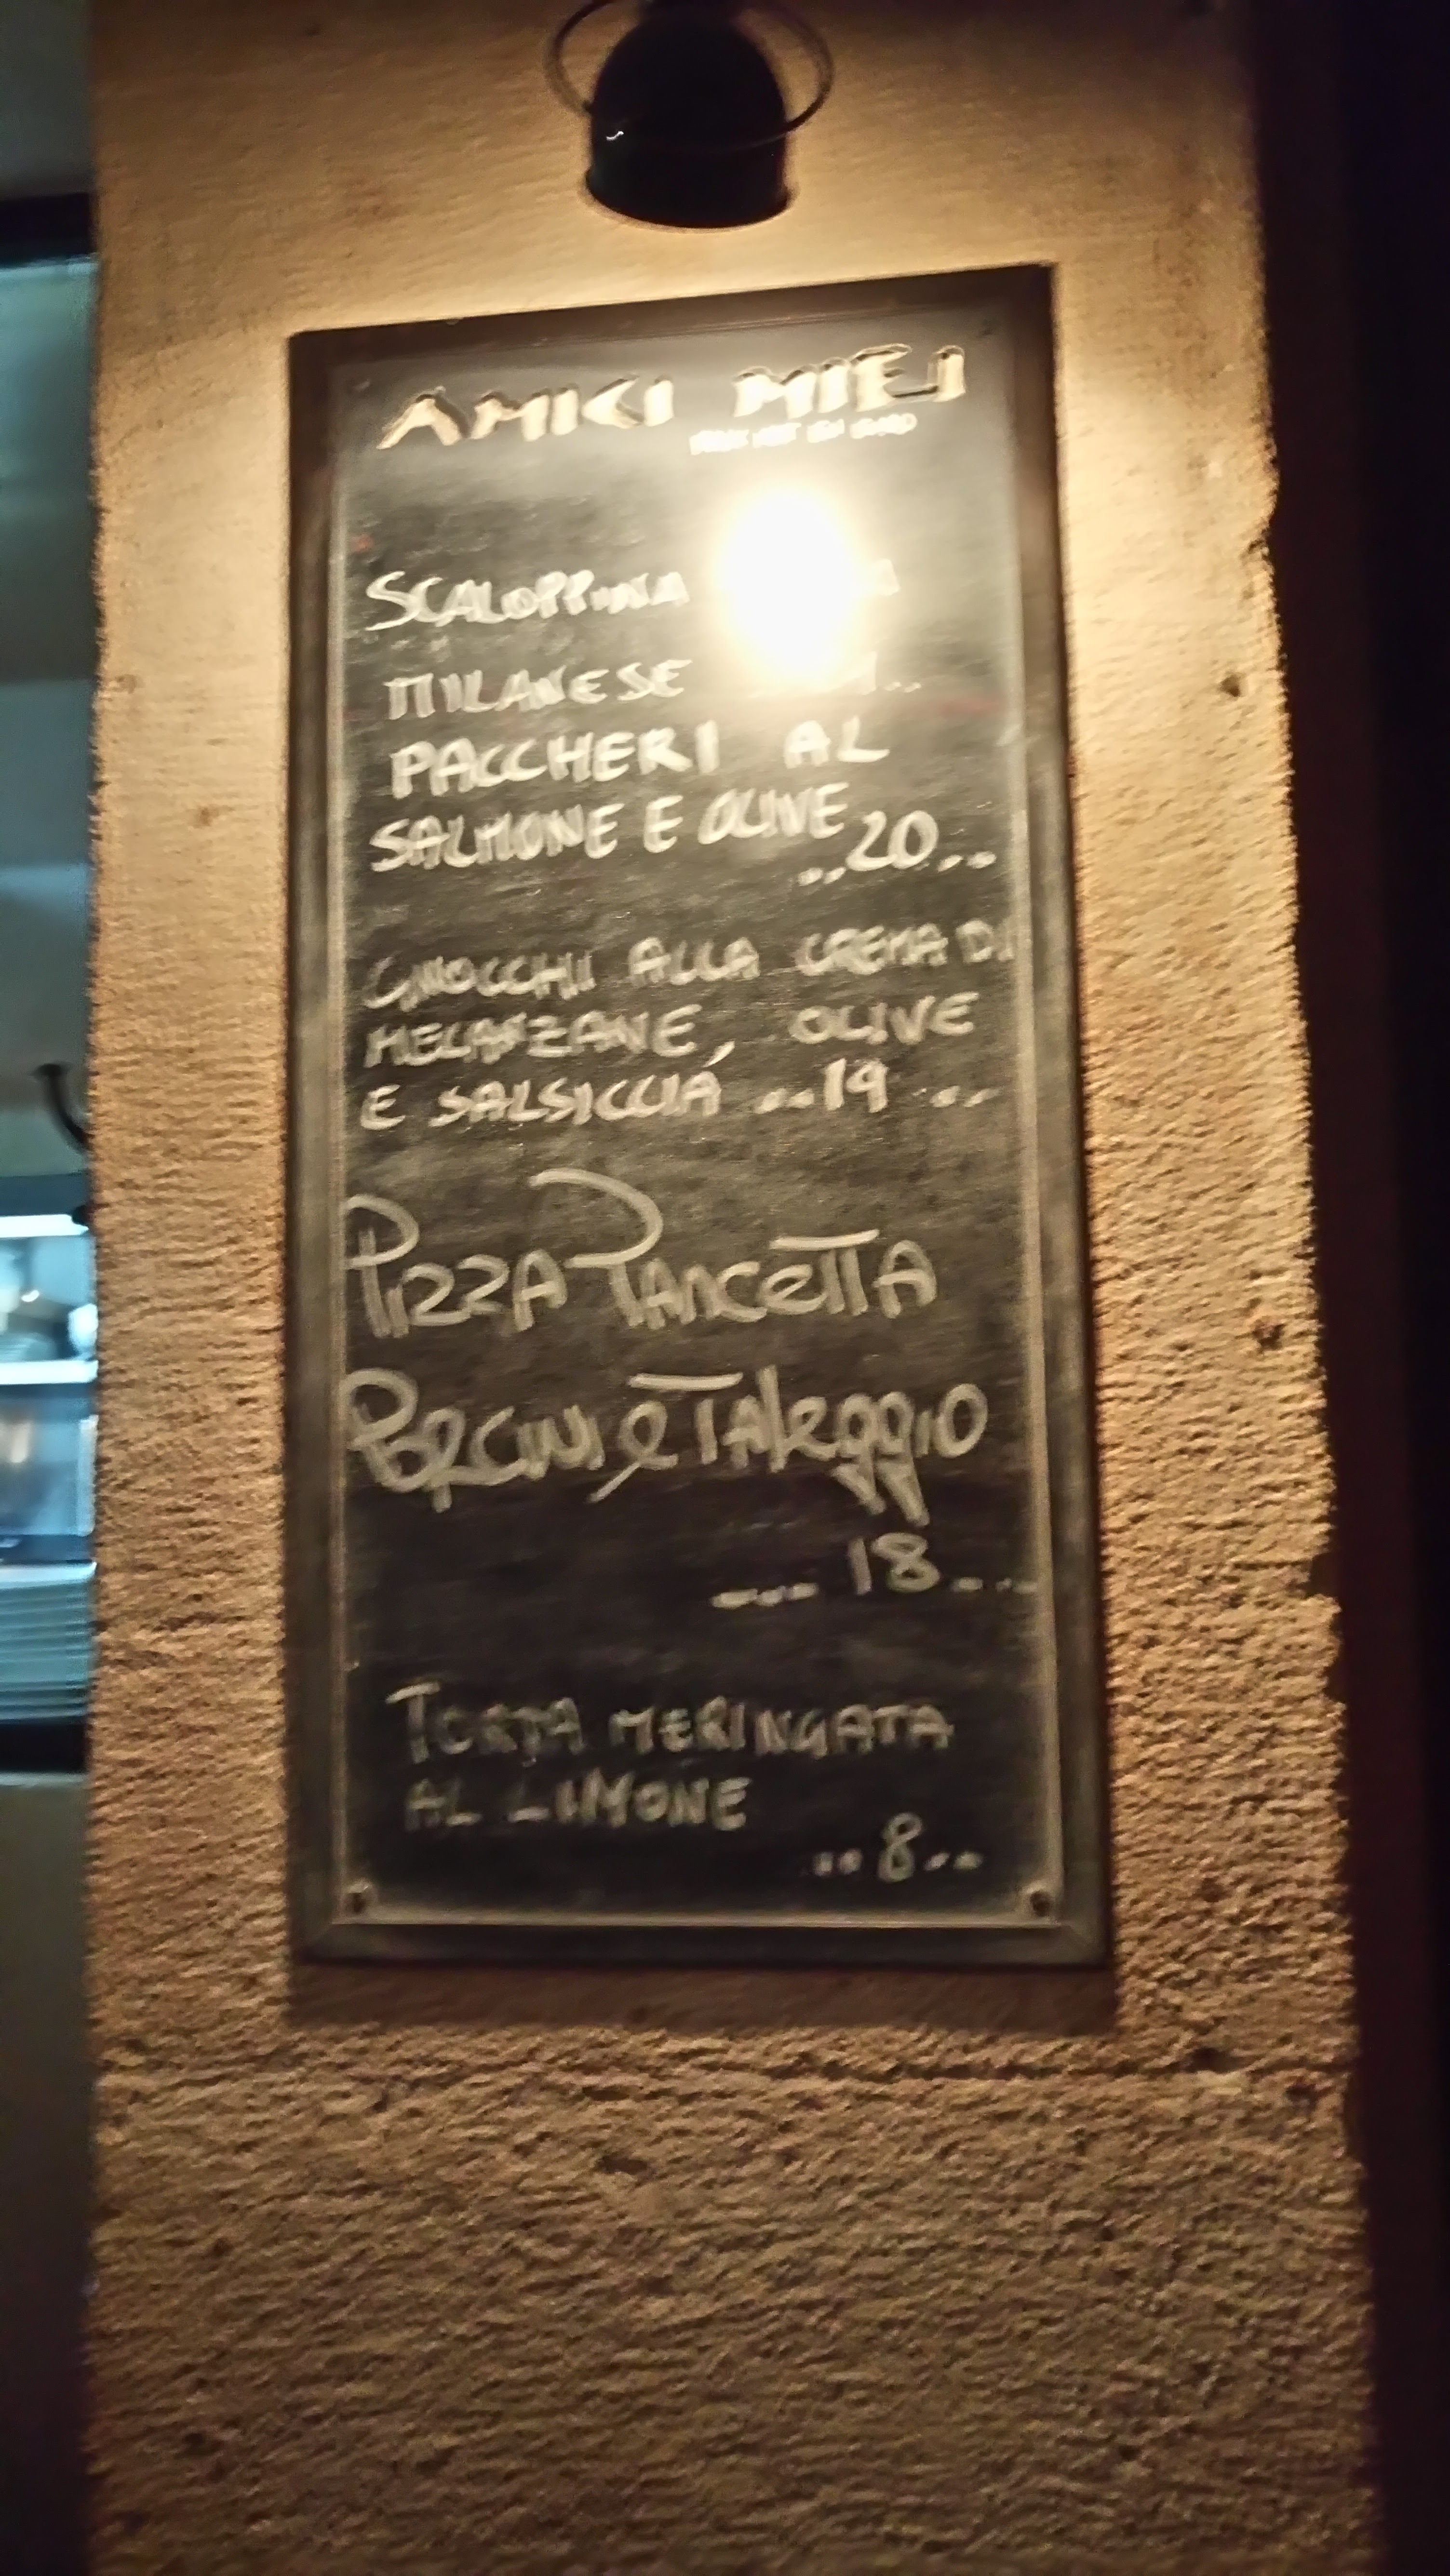 AMICI MIEI
SCALOPPINA
MILANESE
PACCHERI AL
SALMONE E OLIVE
..20..
GNOCCHI ALLA CREMA DI
MELANZANE, OLIVE
E SALSICCIA ..19 ...
PIZZA PANCETTA
PORCINI e TALeggIO
... 18...
TORTA MERINGATA
AL LIMONE
..8..